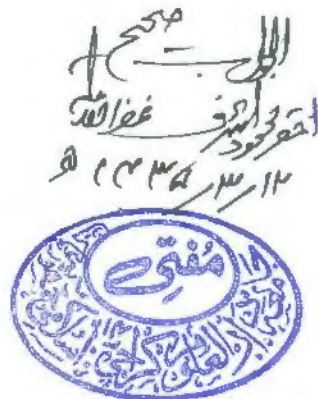 الجواب صحیح
احقر محمود اشرف غفر اللہ لہ
۱۲/۳/۱۴۳۵ھ
مفتی
دارالعلوم کراچی